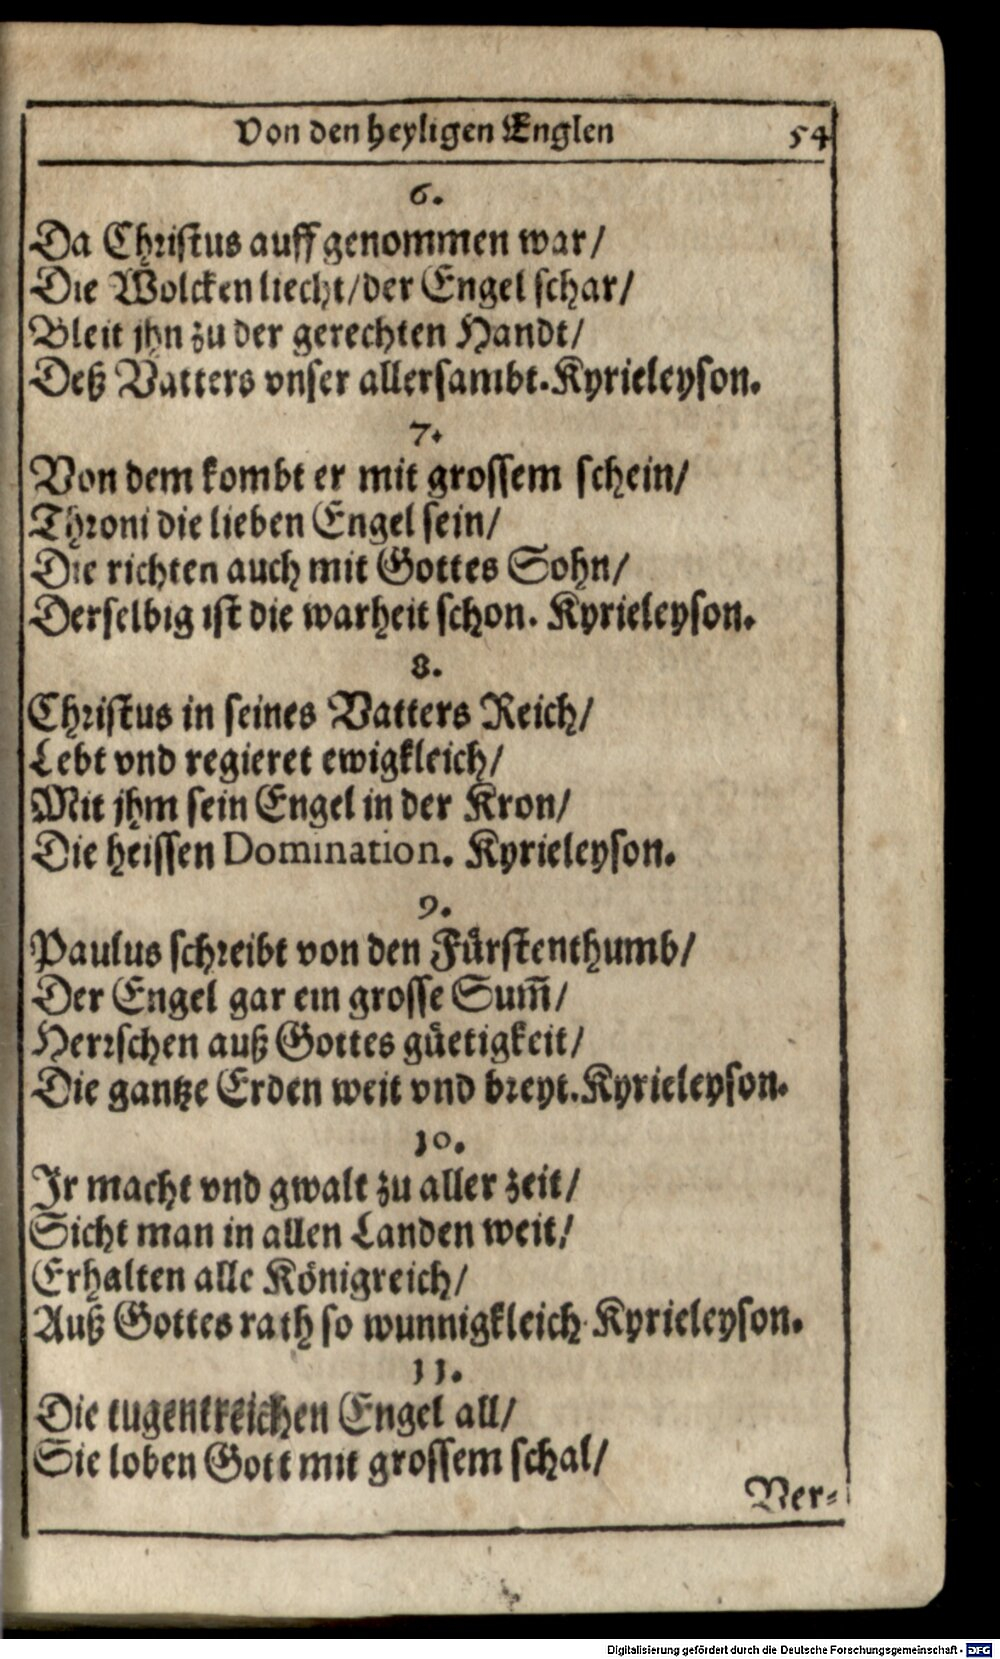 Von den heyligen Englen 54
6.
Da Christus auff genommen war/
Die Wolcken liecht/der Engel schar/
Bleit jhn zu der gerechten Handt/
Deß Vatters vnser allersambt. Kyrieleyson.
7.
Von dem kombt er mit grossem schein/
Throni die lieben Engel sein/
Die richten auch mit Gottes Sohn/
Derselbig ist die warheit schon. Kyrieleyson.
8.
Christus in seines Vatters Reich/
Lebt vnd regieret ewigkleich/
Mit jhm sein Engel in der Kron/
Die heissen Domination. Kyrieleyson.
9.
Paulus schreibt von den Fürstenthumb/
Der Engel gar ein grosse Sum̄/
Herrschen auß Gottes güetigkeit/
Die gantze Erden weit vnd breyt. Kyrieleyson.
10.
Ir macht vnd gwalt zu aller zeit/
Sicht man in allen Landen weit/
Erhalten alle Königreich/
Auß Gottes rath so wunnigkleich. Kyrieleyson.
11.
Die tugentreichen Engel all/
Sie loben Gott mit grossem schal/
Ver-
Digitalisierung gefördert durch die Deutsche Forschungsgemeinschaft - DFG